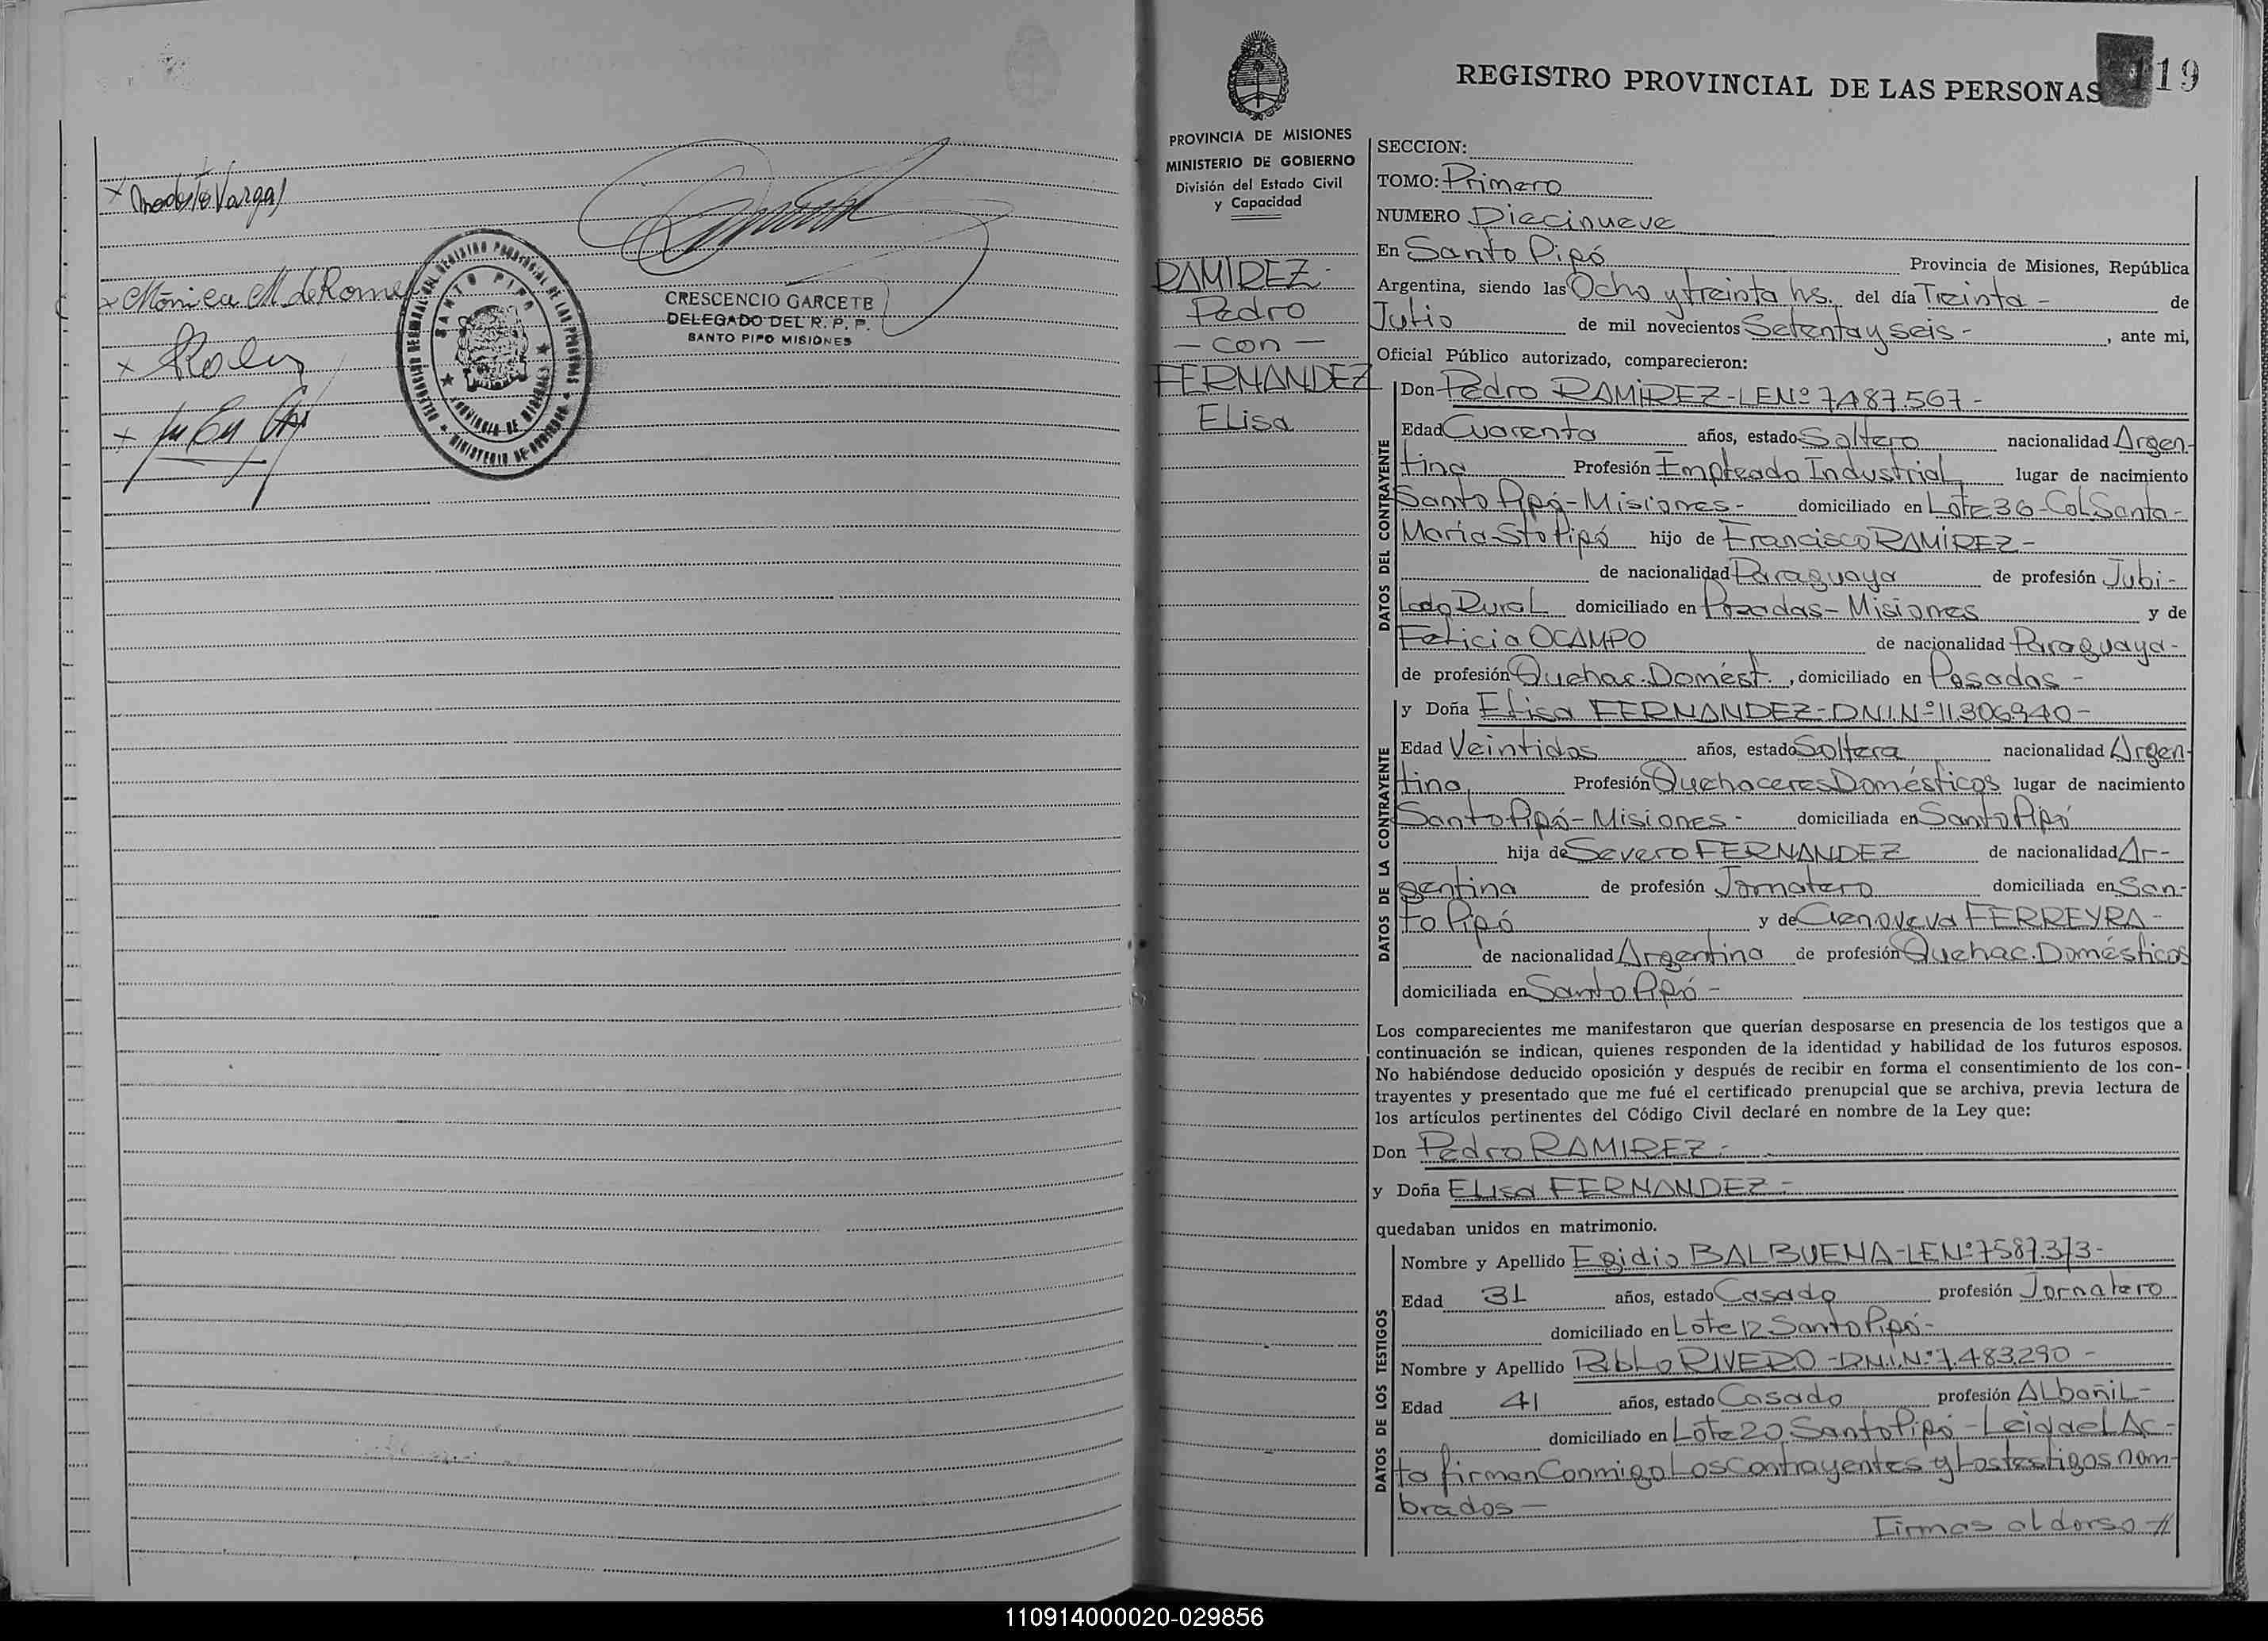 x Modesto Vargas
x Mónica M. de Rome
x
x
DELEGACION REGIONAL DEL REGISTRO PROVINCIAL DE LAS PERSONAS
SANTO PIPO
PROVINCIA DE MISIONES
MINISTERIO DE GOBIERNO
CRESCENCIO GARCETE
DELEGADO DEL R. P. P.
SANTO PIPO MISIONES
PROVINCIA DE MISIONES
MINISTERIO DE GOBIERNO
División del Estado Civil
y Capacidad
RAMIREZ
Pedro
- con -
FERNANDEZ
Elisa
REGISTRO PROVINCIAL DE LAS PERSONAS
19
SECCION:
TOMO: Primero
NUMERO Diecinueve
En Santo Pipó Provincia de Misiones, República
Argentina, siendo las Ocho y treinta hs. del día Treinta - de
Julio de mil novecientos Setenta y seis - , ante mi,
Oficial Público autorizado, comparecieron:
DATOS DEL CONTRAYENTE
Don Pedro RAMIREZ - LE Nº 7487567 -
Edad Cuarenta años, estado Soltero nacionalidad Argen-
tina Profesión Empleado Industrial lugar de nacimiento
Santo Pipó - Misiones - domiciliado en Lote 36 - Col. Santa -
María Sto Pipó hijo de Francisco RAMIREZ -
de nacionalidad Paraguaya de profesión Jubi-
lado Rural domiciliado en Posadas - Misiones y de
Felicia OCAMPO de nacionalidad Paraguaya -
de profesión Quehac. Domést. , domiciliado en Posadas -
DATOS DE LA CONTRAYENTE
y Doña Elisa FERNANDEZ - DNI. Nº 11.306.940 -
Edad Veintidos años, estado Soltera nacionalidad Argen-
tina Profesión Quehaceres Domésticos lugar de nacimiento
Santo Pipó - Misiones - domiciliada en Santo Pipó
hija de Severo FERNANDEZ de nacionalidad Ar-
gentina de profesión Jornalero domiciliada en San-
to Pipó y de Genoveva FERREYRA -
de nacionalidad Argentina de profesión Quehac. Domésticos
domiciliada en Santo Pipó -
Los comparecientes me manifestaron que querían desposarse en presencia de los testigos que a
continuación se indican, quienes responden de la identidad y habilidad de los futuros esposos.
No habiéndose deducido oposición y después de recibir en forma el consentimiento de los con-
trayentes y presentado que me fué el certificado prenupcial que se archiva, previa lectura de
los artículos pertinentes del Código Civil declaré en nombre de la Ley que:
Don Pedro RAMIREZ -
y Doña Elisa FERNANDEZ -
quedaban unidos en matrimonio.
DATOS DE LOS TESTIGOS
Nombre y Apellido Egidio BALBUENA - LE Nº 7587.373 -
Edad 31 años, estado Casado profesión Jornalero
domiciliado en Lote 12 Santo Pipó -
Nombre y Apellido Pablo RIVERO - D.N.I. Nº 7.483.290 -
Edad 41 años, estado Casado profesión Albañil -
domiciliado en Lote 20 Santo Pipó - Leida el Ac-
ta firman Conmigo Los Contrayentes y Los testigos nom-
brados -
Firmas al dorso //
110914000020-029856